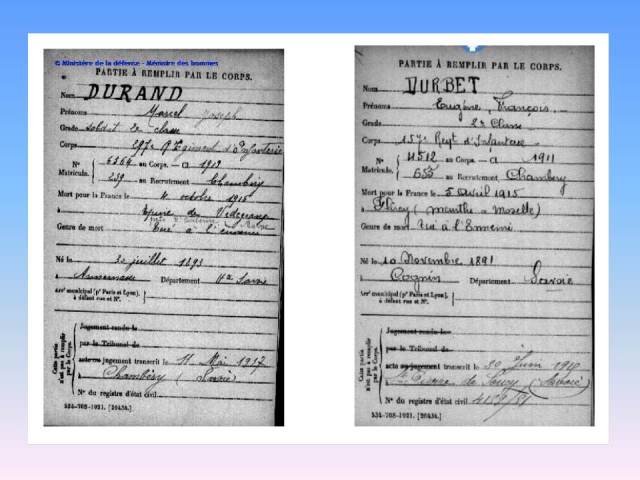 © Ministère de la défense - Mémoire des hommes
PARTIE À REMPLIR PAR LE CORPS.
Nom DURAND
Prénoms Marcel Joseph
Grade soldat 2e classe
Corps 297e Régiment d'Infanterie
N° 6569 au Corps. — Cl 1913
Matricule. 239 au Recrutement Chambéry
Mort pour la France le 4 octobre 1915
à
Genre de mort Tué à l'ennemi
Né le 20 juillet 1893
à Département Hte Savoie
Arr' municipal (p' Paris et Lyon),
à défaut rue et N°.
Cette partie
n'est pas à remplir
par le Corps.
Jugement rendu le
par le Tribunal de
acte ou jugement transcrit le 11 Mai 1917
à Chambéry (Savoie)
N° du registre d'état civil
534-708-1921. [26434.]
PARTIE À REMPLIR PAR LE CORPS.
Nom DURBET
Prénoms Eugène, François
Grade 2e Classe
Corps 157e Regt d'Infanterie
N° 4512 au Corps. — Cl 1911
Matricule. 655 au Recrutement Chambéry
Mort pour la France le 5 Avril 1915
à Flirey (Meurthe et Moselle)
Genre de mort Tué à l'Ennemi
Né le 10 Novembre 1891
à Cognin Département Savoie
Arr' municipal (p' Paris et Lyon),
à défaut rue et N°.
Cette partie
n'est pas à remplir
par le Corps.
Jugement rendu le
par le Tribunal de
acte ou jugement transcrit le 30 Juin
à St Pierre de (Savoie)
N° du registre d'état civil
534-708-1921. [26434.]